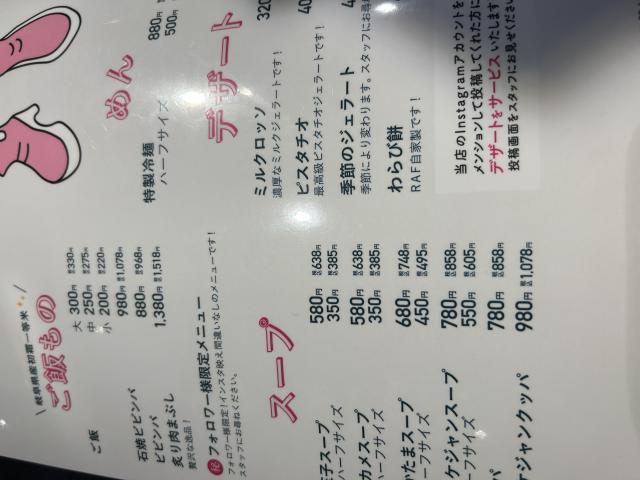 岐阜県産初霜一等米
ご飯もの
ご飯
大 300円 税込330円
中 250円 税込275円
小 200円 税込220円
石焼ビビンバ 980円 税込1,078円
ビビンバ 880円 税込968円
炙り肉まぶし 1,380円 税込1,518円
贅沢な逸品!
㊙フォロワー様限定メニュー
フォロワー様限定!インスタ映え間違いなしのメニューです!
スタッフにお尋ねください。
スープ
子スープ 580円 税込638円
ハーフサイズ 350円 税込385円
カメスープ 580円 税込638円
ハーフサイズ 350円 税込385円
かたまスープ 680円 税込748円
ーフサイズ 450円 税込495円
ケジャンスープ 780円 税込858円
ーフサイズ 550円 税込605円
パ 780円 税込858円
ケジャンクッパ 980円 税込1,078円
めん
特製冷麺 880円
ハーフサイズ 500円
デザート
ミルクロッソ 320
濃厚なミルクジェラートです!
ピスタチオ 40
最高級ピスタチオジェラートです!
季節のジェラート 4
季節により変わります。スタッフにお尋
わらび餅
RAF自家製です!
当店のInstagramアカウントを
メンションして投稿してくれた方に
デザートをサービスいたします
投稿画面をスタッフにお見せくださ